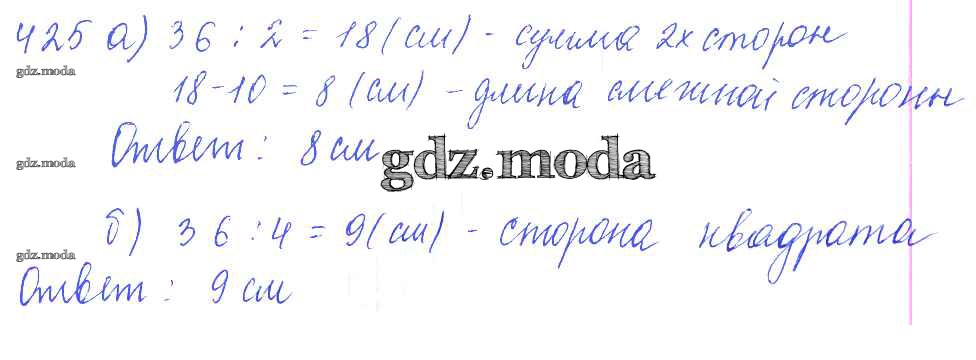 425 а) 36 : 2 = 18 (см) - сумма 2х сторон
gdz.moda
18 - 10 = 8 (см) - длина смежной стороны
Ответ : 8 см
gdz.moda
gdz.moda
б) 36 : 4 = 9 (см) - сторона квадрата
gdz.moda
Ответ : 9 см